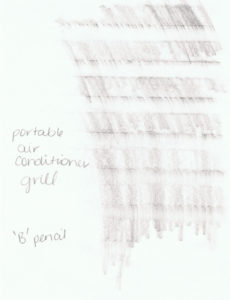 portable
air
conditioner
grill
'B' pencil